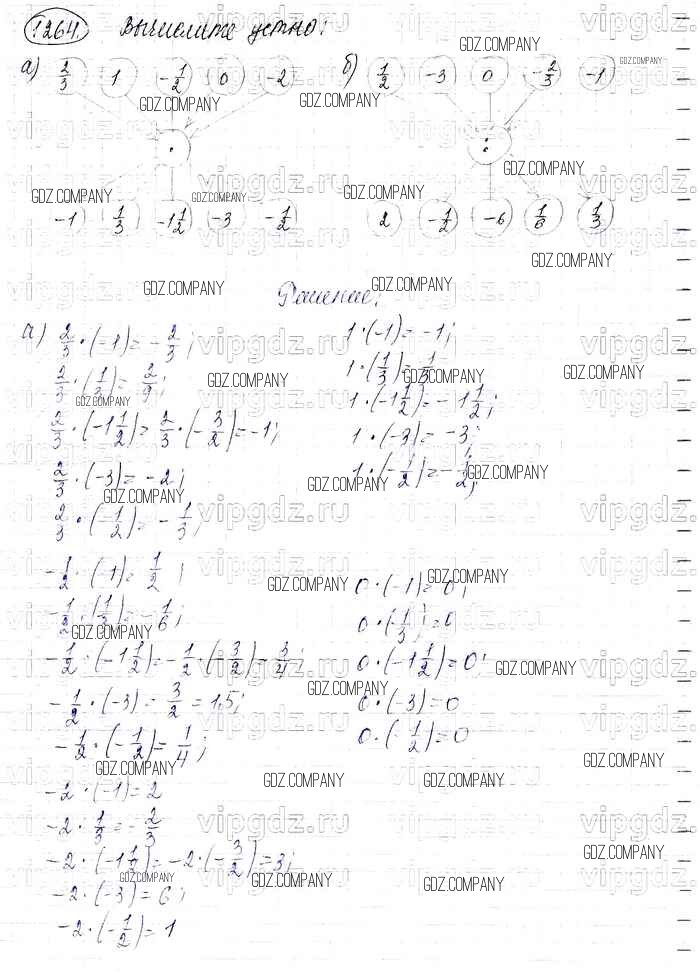 1264. Вычислите устно:
а) 2/3 1 -1/2 0 -2 б) 1/2 -3 0 -2/3 -1
· :
-1 1/3 -1 1/2 -3 -1/2 2 -1/2 -6 1/6 1/3
Решение:
а) 2/3 · (-1) = -2/3;
2/3 · (1/3) = 2/9;
2/3 · (-1 1/2) = 2/3 · (-3/2) = -1;
2/3 · (-3) = -2;
2/3 · (-1/2) = -1/3;
1 · (-1) = -1;
1 · (1/3) = 1/3
1 · (-1 1/2) = -1 1/2;
1 · (-3) = -3;
1 · (-1/2) = -1/2;
-1/2 · (-1) = 1/2;
-1/2 · (1/3) = -1/6;
-1/2 · (-1 1/2) = -1/2 · (-3/2) = 3/4;
-1/2 · (-3) = 3/2 = 1,5;
-1/2 · (-1/2) = 1/4;
0 · (-1) = 0;
0 · (1/3) = 0
0 · (-1 1/2) = 0;
0 · (-3) = 0
0 · (-1/2) = 0
-2 · (-1) = 2
-2 · 1/3 = -2/3
-2 · (-1 1/2) = -2 · (-3/2) = 3;
-2 · (-3) = 6;
-2 · (-1/2) = 1
GDZ.COMPANY
vipgdz.ru